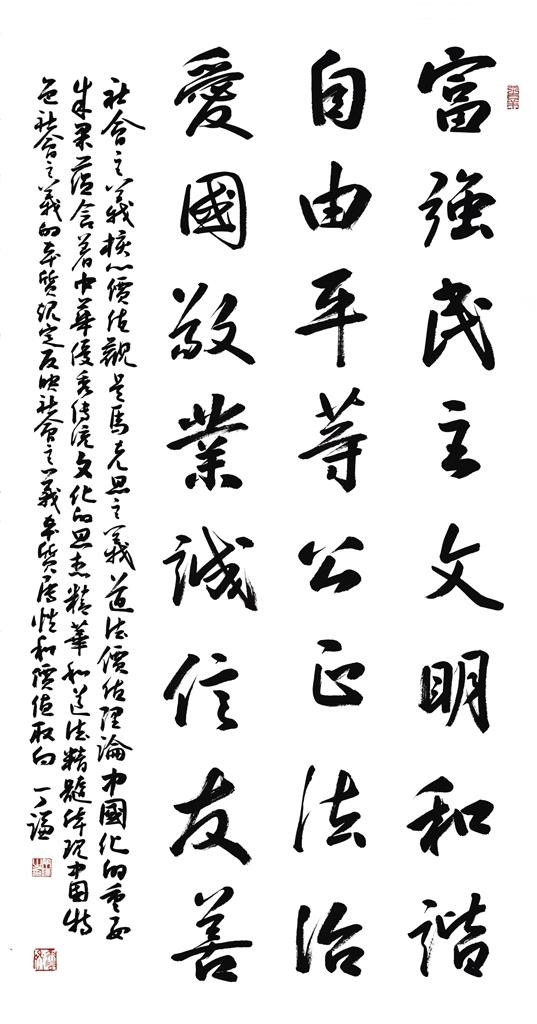 富強民主文明和諧
自由平等公正法治
愛國敬業誠信友善
社會主義核心價值觀是馬克思主義道德價值理論中國化的重要
成果蕴含着中華優秀傳统文化的思想精華和道德精髓体现中国特
色社會主義的本質規定反映社會主義本質属性和價值取向 丁謙